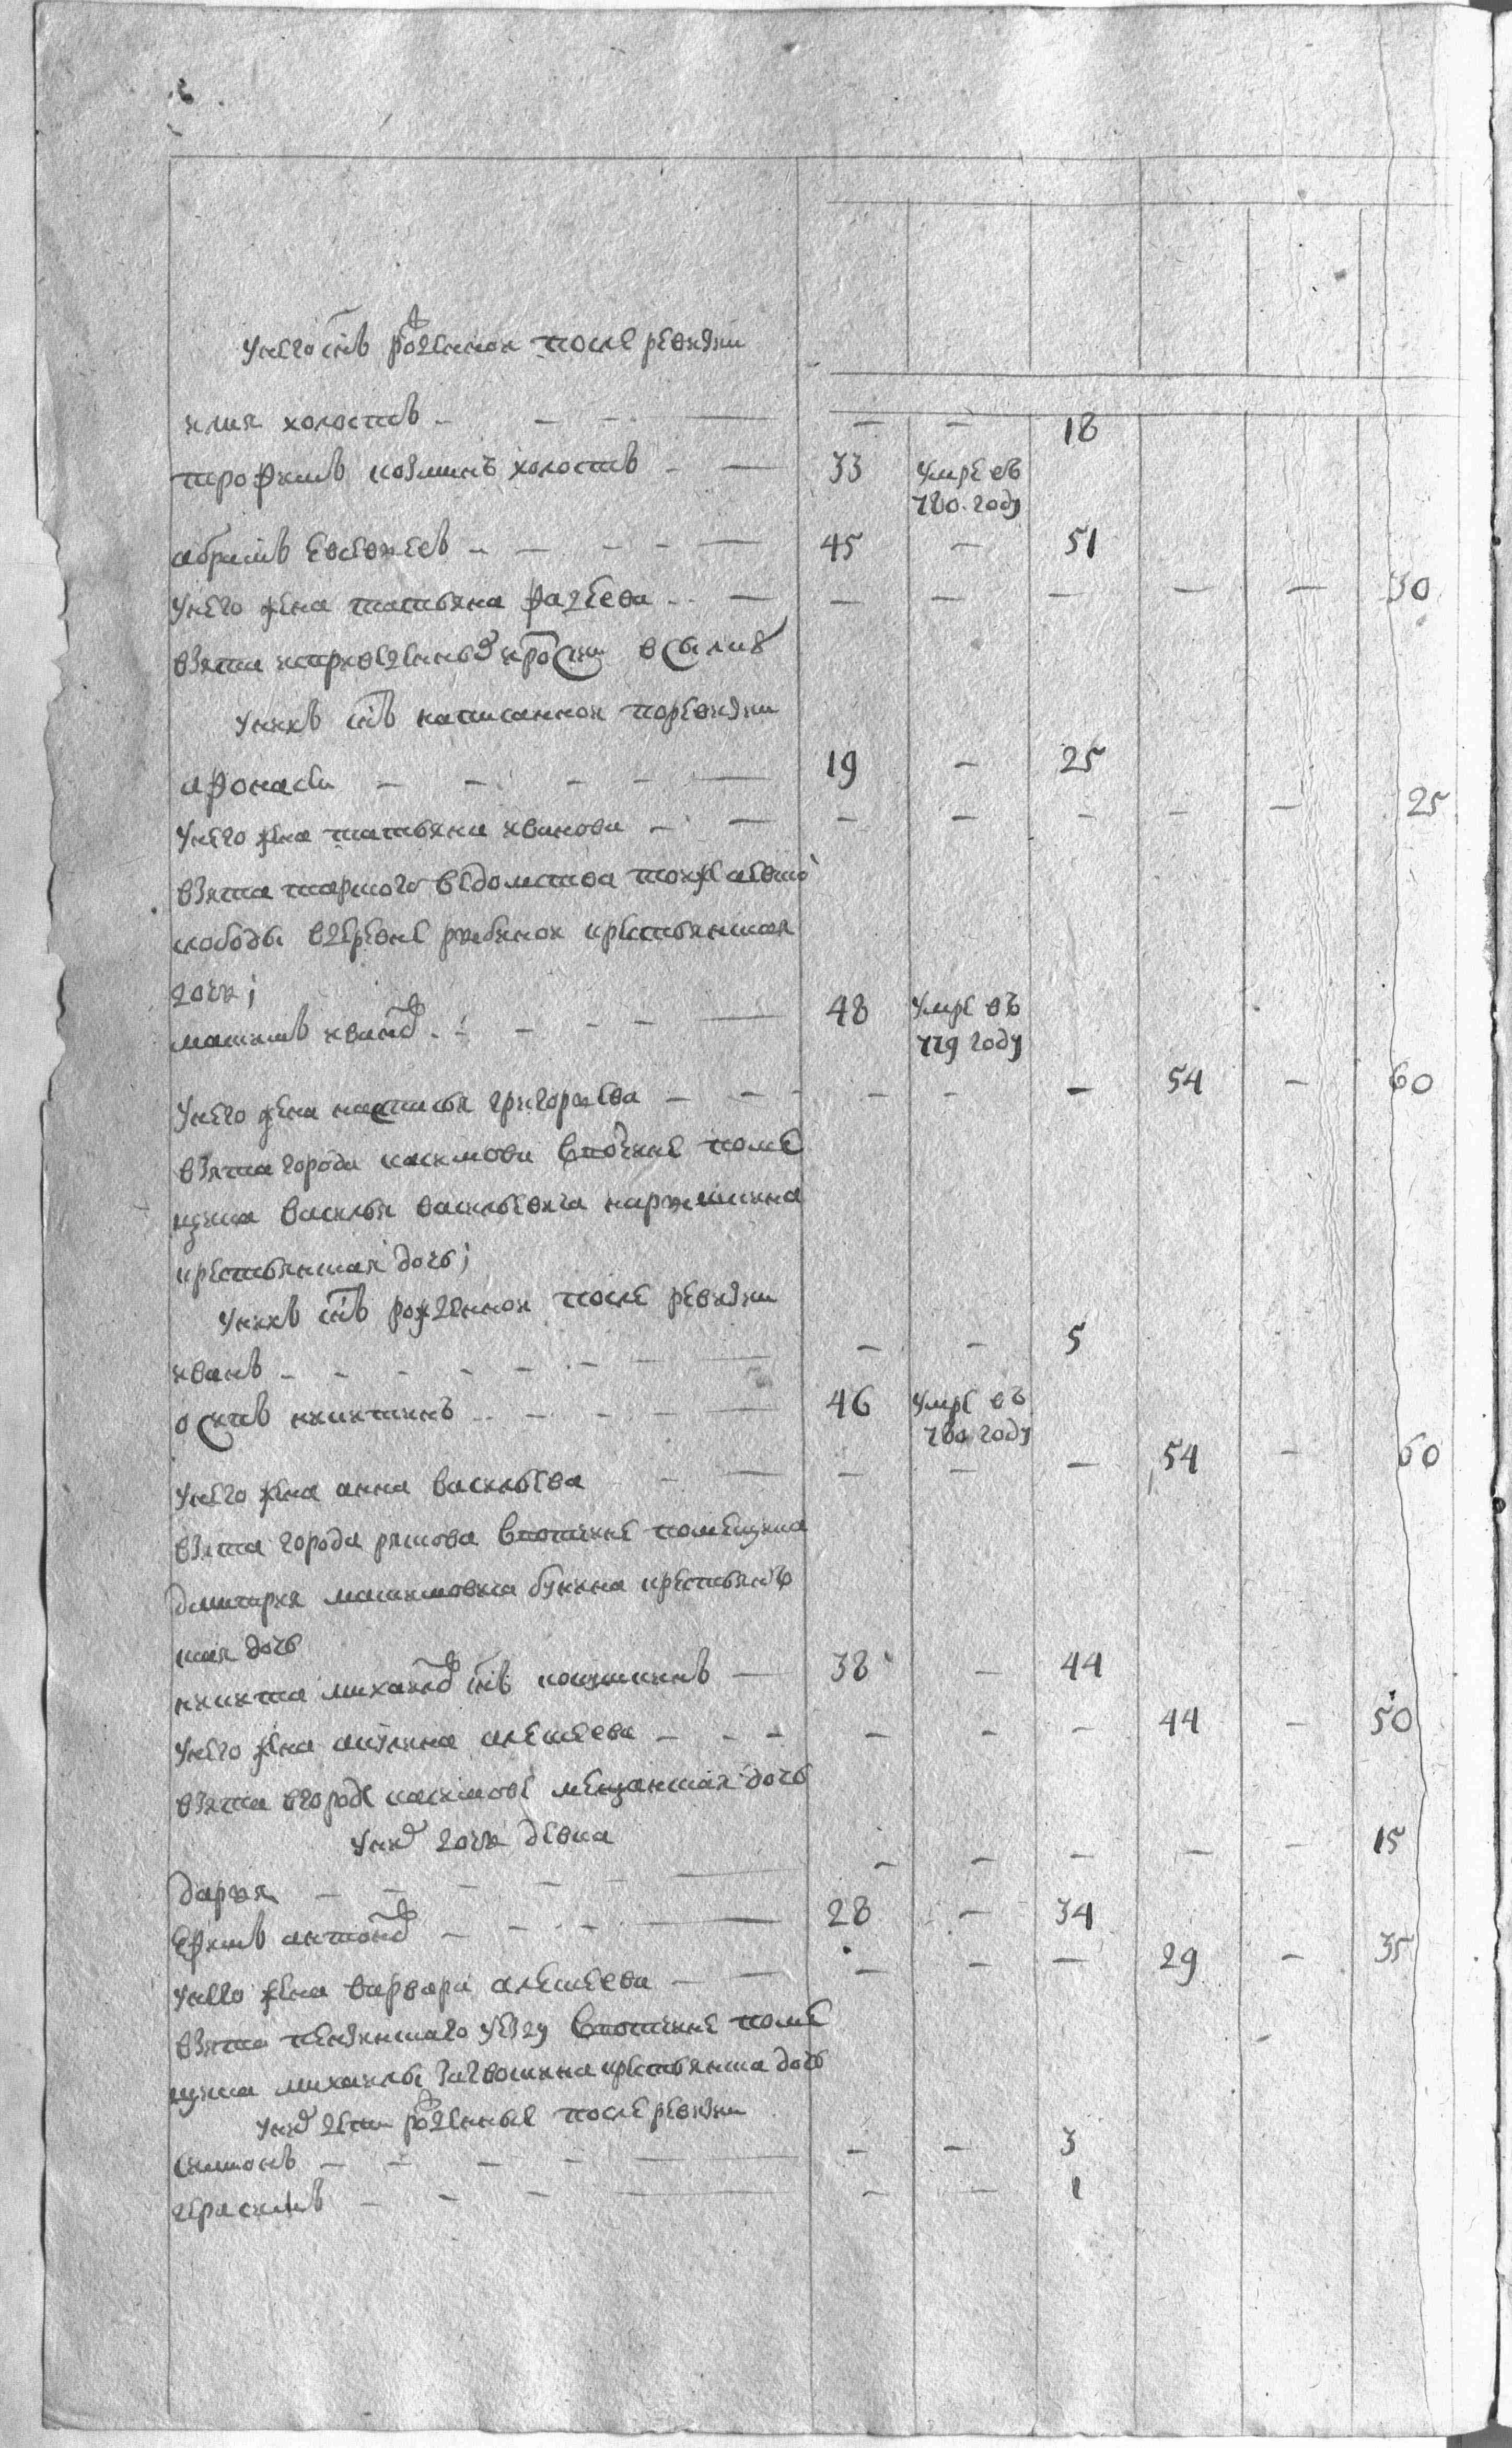 у него снъ рожденнои после ревизии
илия холостъ — — — — — — 18
трофимъ козминъ холостъ — — 33 умре въ
780 году
абрамъ евсевиевъ — — — — — 45 — 51
у него жена татьяна фадеева — — — — — — — 30
взята
у нихъ снъ написаннои по ревизии
афонасеи — — — — — 19 — 25
у него жена татьяна иванова — — — — — — — 25
взята ведомства
слободы в деревне крестьянская
дочь;
максимъ ивановъ — — — — — 48 умре въ
779 году
у него жена настасья григорьева — — — — — — 54 — 60
взята города касимова вотчине поме
щика василья васильевича нарышкина
крестьянская дочь;
у нихъ снъ рожденнои после ревизии
иванъ — — — — — — — — — 5
осипъ никитинъ — — — — — 46 умре въ
780 году
у него жена анна васильева — — — — — — 54 — 60
взята города вотчине помещика
дмитрея максимовича бунина крестьянъ
ская дочь
никита михаиловъ снъ — 38 — 44
у него жена акулина алексеева — — — — — — 44 — 50
взята в городе касимове мещанская дочь
у нихъ дочь девка
дарья — — — — — — — — — — — 15
ефимъ антоновъ — — — — — 28 — 34
у него жена варвара алексеева — — — — — 29 — 35
взята уезду вотчине поме
щика михаилы крестьянска дочь
у нихъ дети рожденные после ревизии
симионъ — — — — — — — 3
герасимъ — — — — — — 1